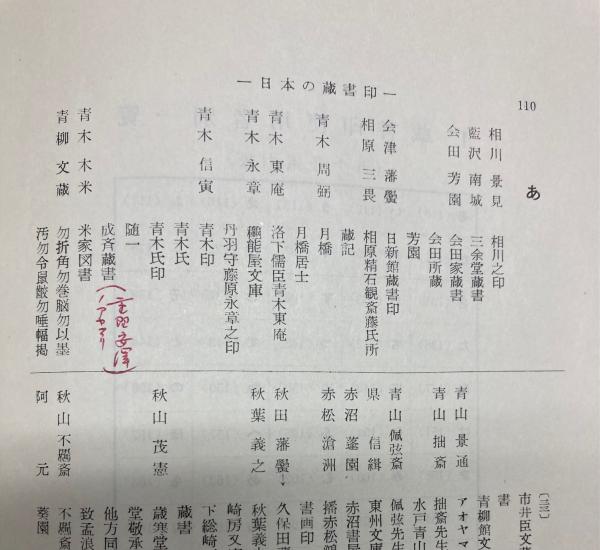 ―日本の蔵書印―
110
あ
相川景見 相川之印
藍沢南城 三余堂蔵書
会田芳園 会田家蔵書
会田所蔵
芳園
会津藩黌 日新館蔵書印
相原三畏 相原精石観斎藤氏所
蔵記
青木周弼 月橋
月橋居士
青木東庵 洛下儒臣青木東庵
青木永章 能屋文庫
丹羽守藤原永章之印
青木信寅 青木印
青木氏
青木氏印
随一
成斉蔵書
青木木米 米家図書
青柳文蔵 勿折角勿巻脳勿以墨
汚勿令鼠齧勿唾幅掲
〔三三〕
市井臣文
書
青柳館文
青山景通 アオヤマ
青山拙斎 拙斎先生
水戸青山
青山佩弦斎 佩弦先生
県信緝 東州文庫
赤沼蓬園 赤沼書屋
赤松滄洲 播赤松鴻
書画印
秋田藩黌→ 久保田
秋葉義之 秋葉義
崎房又
下総崎
蔵書
秋山茂憲 歳寒堂
堂敬承
他方同
致孟浪
秋山不羈斎 不羈斎
阿元 葵園